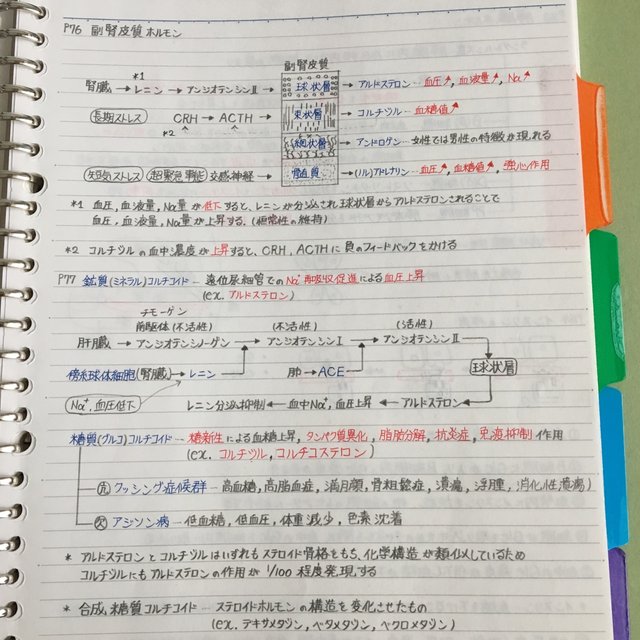 P76 副腎皮質ホルモン
副腎皮質
*1
腎臓 → レニン → アンジオテンシンⅡ → 球状層 → アルドステロン … 血圧↗, 血液量↗, Na↗
長期ストレス CRH → ACTH → 束状層 → コルチゾル … 血糖値↗
*2
網状層 → アンドロゲン … 女性では男性の特徴が現れる
短気ストレス 超緊急事態 交感神経 → 髄質 → (ノル)アドレナリン … 血圧↗, 血糖値↗, 強心作用
*1 血圧, 血液量, Na量が低下すると、レニンが分泌され球状層からアルドステロンされることで
血圧, 血液量, Na量が上昇する. (恒常性の維持)
*2 コルチゾルの血中濃度が上昇すると、CRH, ACTHに負のフィードバックをかける
P77 鉱質(ミネラル)コルチコイド … 遠位尿細管でのNa⁺再吸収促進による血圧上昇
(ex. アルドステロン)
チモーゲン
前駆体(不活性) (不活性) (活性)
肝臓 → アンジオテンシノーゲン → アンジオテンシンⅠ → アンジオテンシンⅡ
傍糸球体細胞(腎臓) → レニン 肺 → ACE 球状層
Na⁺, 血圧低下 レニン分泌抑制 ← 血中Na⁺, 血圧上昇 ← アルドステロン
糖質(グルコ)コルチコイド … 糖新生による血糖上昇, タンパク質異化, 脂肪分解, 抗炎症, 免疫抑制作用
(ex. コルチゾル, コルチコステロン)
亢 クッシング症候群 … 高血糖, 高脂血症, 満月顔, 骨粗鬆症, 潰瘍, 浮腫, 消化性潰瘍)
欠 アジソン病 … 低血糖, 低血圧, 体重減少, 色素沈着
* アルドステロンとコルチゾルはいずれもステロイド骨格をもち、化学構造が類似しているため
コルチゾルにもアルドステロンの作用が 1/100 程度発現する
* 合成糖質コルチコイド … ステロイドホルモンの構造を変化させたもの
(ex. デキサメタゾン, ベタメタゾン, ベクロメタゾン)